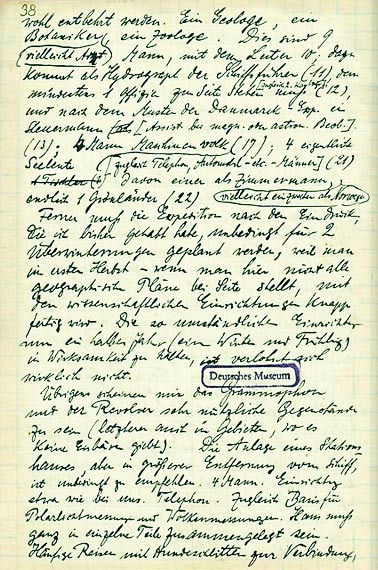 38
wohl entbehrt werden. Ein Geologe, ein
Botaniker, ein Zoologe. Dies sind 9
(vielleicht Arzt) Mann, mit dem Leiter 10; dazu
kommt als Hydrograph der Schiffsführer (11) dem
mindestens 1 Offizier zur Seite stehen muß (12),
und nach dem Muster der Danmark Exp. ein
Steuermann [Assist. bei magn.
(13); 4 Mann Maschinenvolk (17); 4 eigentliche
Seeleute [zugleich Telephon, Automobil- etc. -Männer] (21)
Davon einer als Zimmermann;
endlich 1 Grönländer (22) (vielleicht ein zweiter als Norweger)
Ferner muß die Expedition nach dem Eindruck,
die ich bisher gehabt habe, unbedingt für 2
Überwinterungen geplant werden, weil man
im ersten Herbst - wenn man hier nicht alle
geographischen Pläne bei Seite stellt, mit
den wissenschaftlichen Einrichtungen knapp
fertig wird. Die so umständlichen Einrichtungen
nur ein halbes Jahr (einen Winter und Frühling)
in Wirksamkeit zu halten, verlohnt sich
wirklich nicht.
Deutsches Museum
Übrigens scheinen mir das Grammophon
und der Revolver sehr nützliche Gegenstände
zu sein (letzterer auch in Gebieten, wo es
keine Eisbären giebt). Die Anlage eines Stations-
hauses, aber in größerer Entfernung vom Schiff,
ist unbedingt zu empfehlen. 4 Mann. Einrichtung
etwa wie bei uns. Telephon. Zugleich Basis für
Polarlichtmessung und Wolkenmessungen. Haus muß
ganz in einzelne Teile zusammengelegt sein.
Häufige Reisen mit Hundeschlitten zur Verbindung,